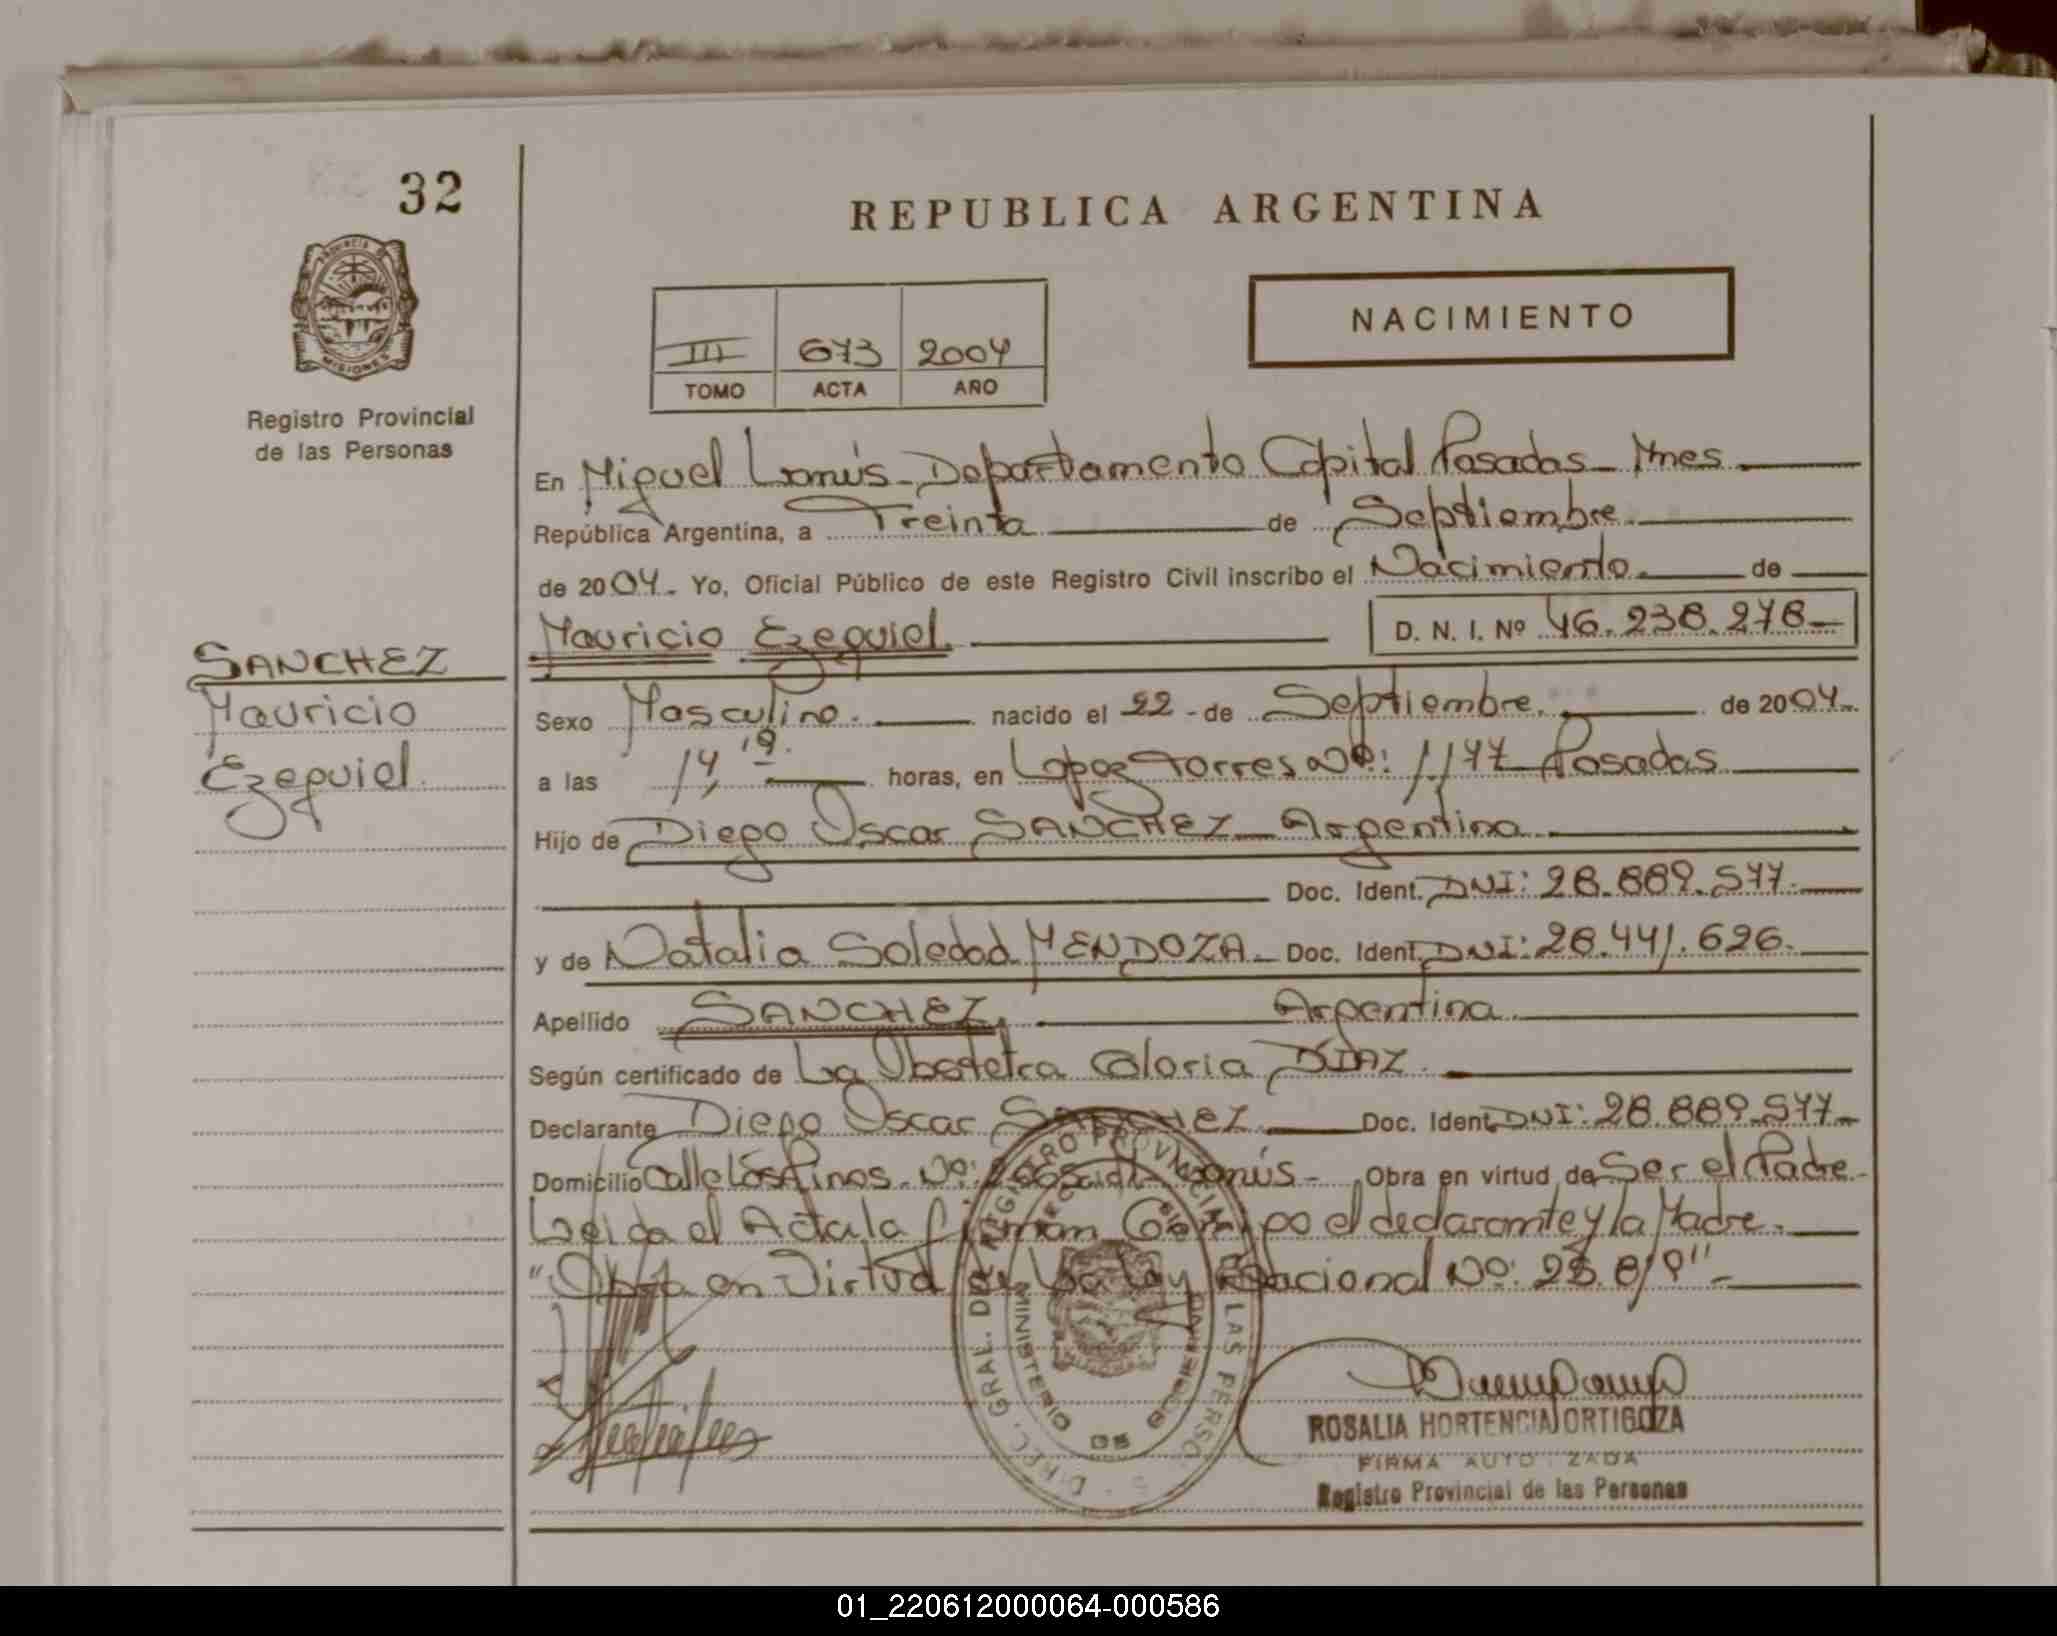 32
REPUBLICA ARGENTINA
NACIMIENTO
III 673 2004
TOMO ACTA AÑO
PROVINCIA DE MISIONES
Registro Provincial
de las Personas
En Miguel Lanús - Departamento Capital Posadas - Mnes
República Argentina, a Treinta de Septiembre
de 2004. Yo, Oficial Público de este Registro Civil inscribo el Nacimiento de
Mauricio Ezequiel D. N. I. Nº 46.238.278
SANCHEZ
Mauricio
Ezequiel.
Sexo Masculino. nacido el 22 - de Septiembre. de 2004.
a las 14,19. horas, en Lopez Torres Nº: 1177 Posadas
Hijo de Diego Oscar SANCHEZ - Argentina
Doc. Ident. DNI: 28.889.577.
y de Natalia Soledad MENDOZA - Doc. Ident. DNI: 28.441.626.
Apellido SANCHEZ. Argentina
Según certificado de La Obstetra Gloria DÍAZ.
Declarante Diego Oscar SANCHEZ Doc. Ident. DNI: 28.889.577.
Domicilio Calle Los Pinos. Nº: Lanús - Obra en virtud de Ser el Padre
Leida el Acta la firman el declarante y la Madre.
"Obra en Virtud de la Ley Nacional Nº: 25.819"
DIREC. GRAL. DEL REGISTRO PROVINCIAL DE LAS PERSONAS
MINISTERIO DE GOBIERNO
ROSALIA HORTENCIA ORTIGOZA
FIRMA AUTORIZADA
Registro Provincial de las Personas
01_220612000064-000586